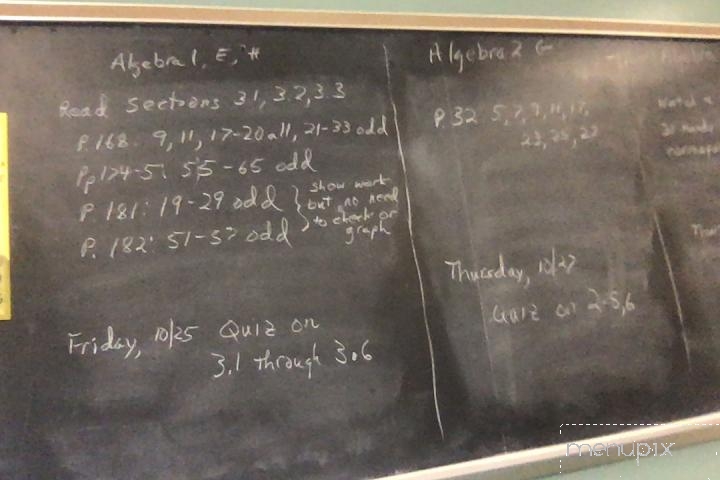 Algebra 1, E, H
Read Sections 3.1, 3.2, 3.3
P. 168: 9, 11, 17-20 all, 21-33 odd
Pp 174-5: 55-65 odd
P. 181: 19-29 odd
P. 182: 51-57 odd
show work
but no need
to check or
graph
Friday, 10/25 Quiz on
3.1 through 3.6
Algebra 2 G
P. 32 5, 7, 9, 11, 17,
23, 25, 27
Thursday, 10/27
Quiz on 2-5,6
menupix